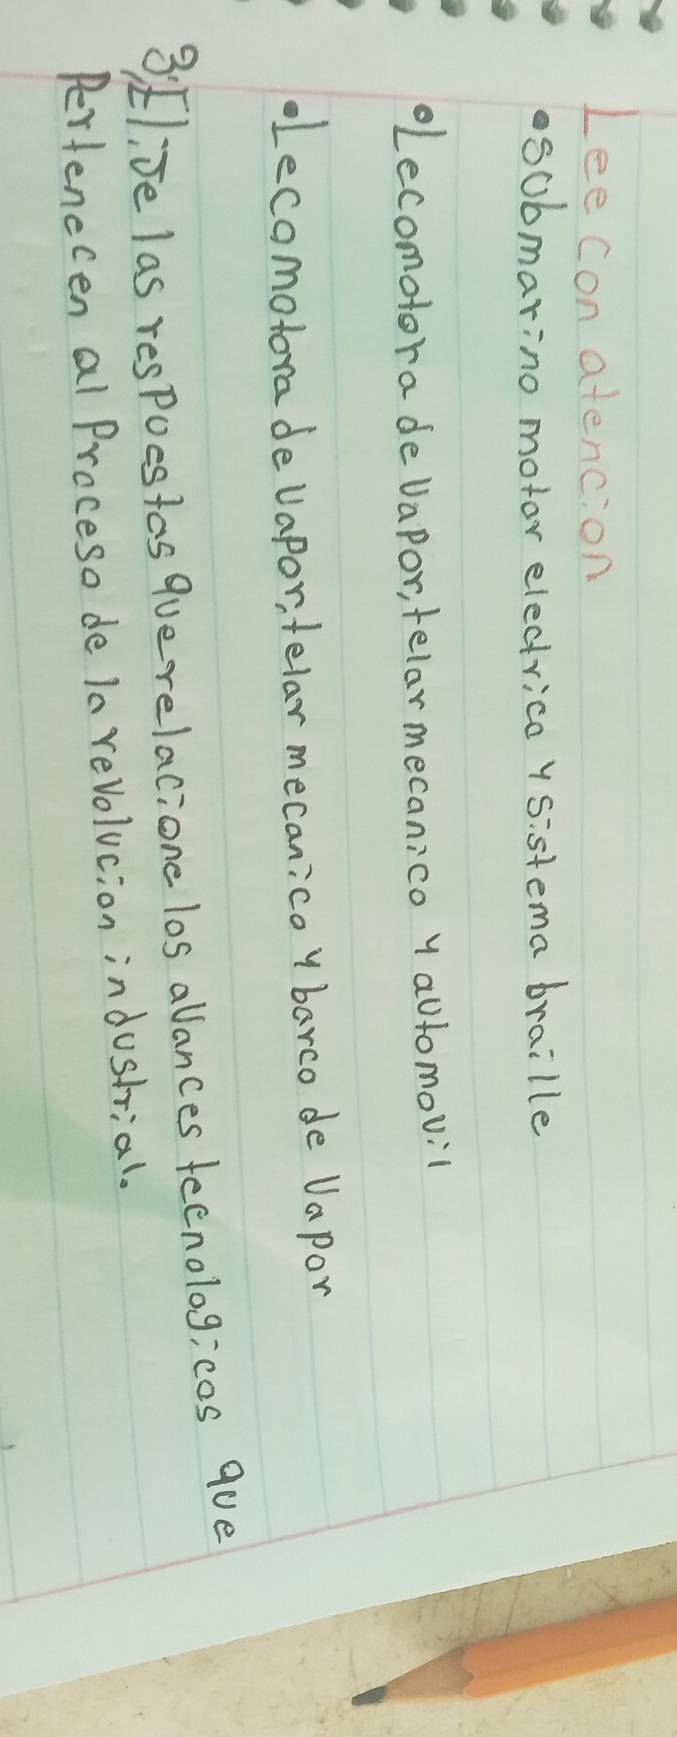 Lee con atencion
•submarino motor electrico y sistema braille
•Lecomotora de vapor, telar mecanico y automovil
•Lecomotora de vapor, telar mecanico y barco de vapor
3, Elije las respuestas que relacione los avances tecnologicos que
Pertenecen al Proceso de la revolucion industrial.